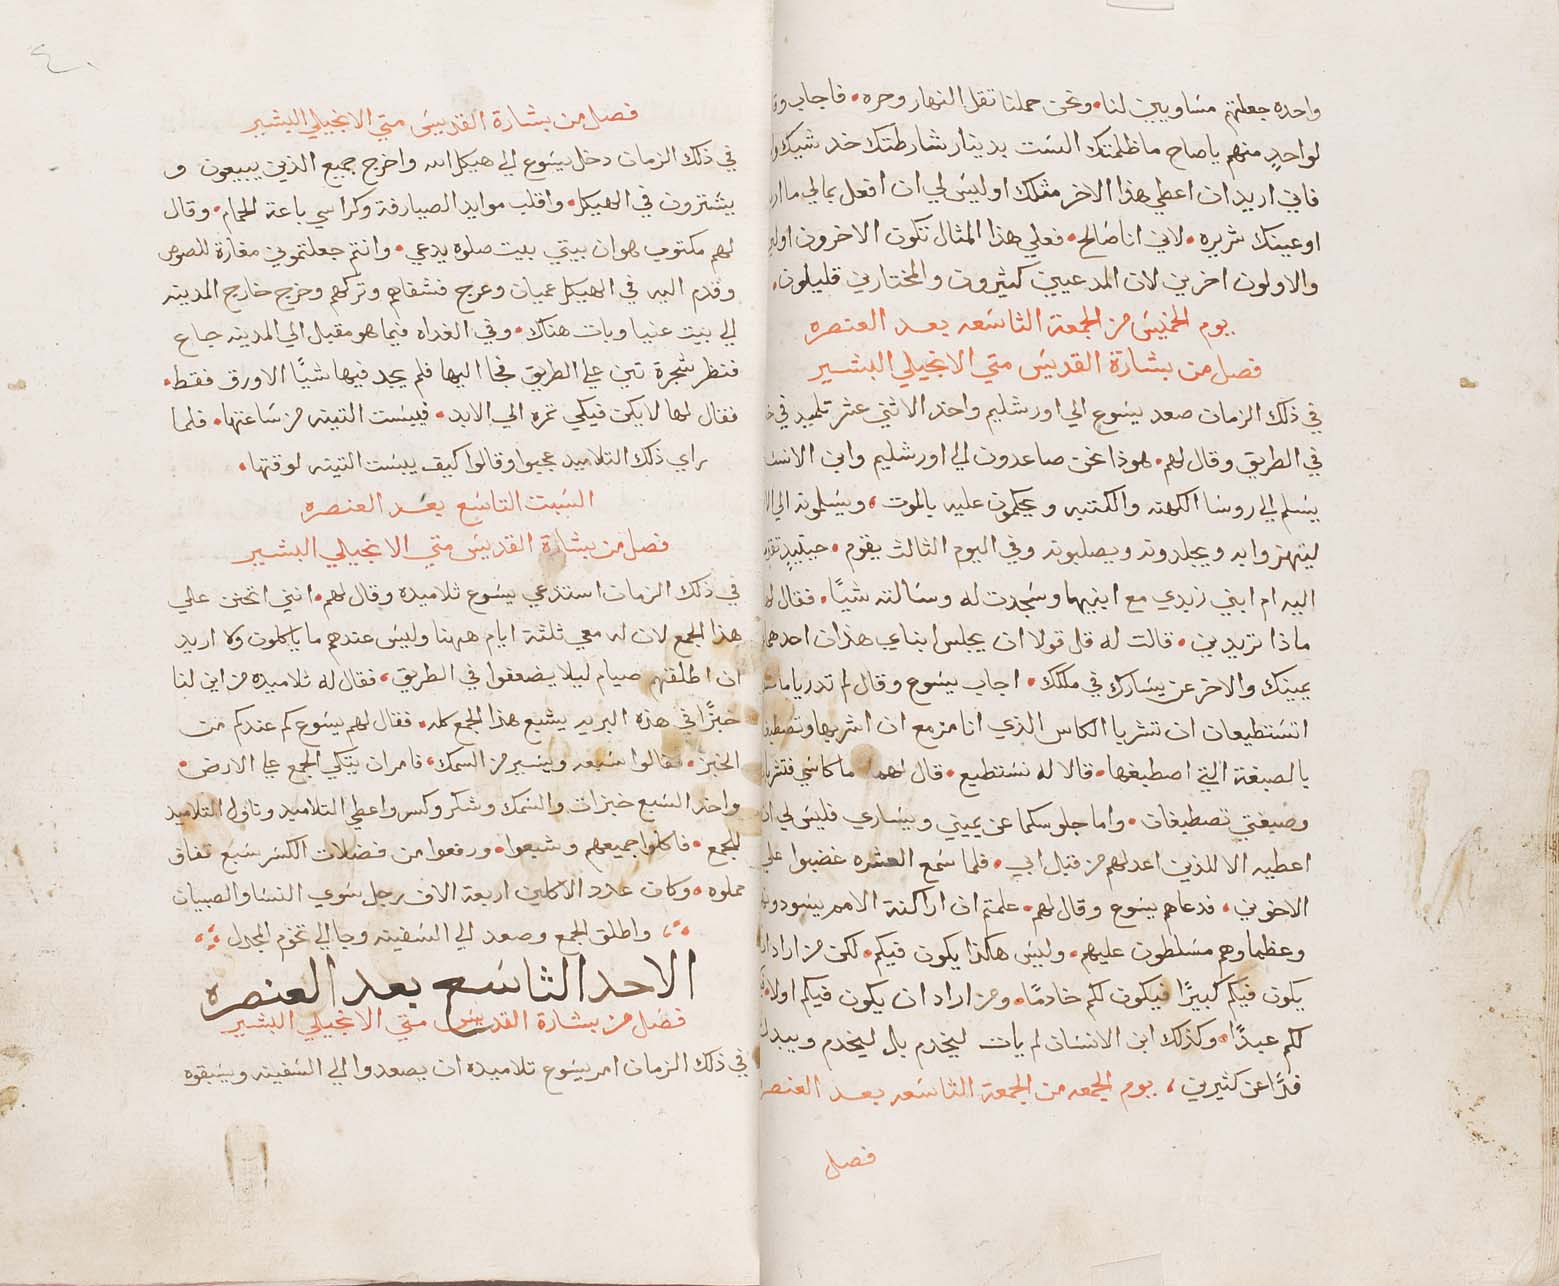 واحده جعلتهم مساويين لنا، ونحن حملنا ثقل النهار وحره، فاجاب
لواحدٍ منهم ياصاح ماظلمتك الست بدينار شارطتك خد شيك
فاني اريد ان اعطي هذا الاخر مثلك اوليس لي ان افعل بمالي ما
اوعينك شريره، لاني انا صالح، فعلي هذا المثال تكون الاخرون
والاولون اخرين لان المدعيين كثيرون والمختارين قليلون،
يوم الخميس من الجمعة التاسعه بعد العنصره
فصل من بشارة القديس متي الانجيلي البشير
في ذلك الزمان صعد يسوع الي اورشليم واخد الاثني عشر تلميد
في الطريق وقال لهم، هوذا نحن صاعدون الي اورشليم وابن
يسلم الي روسا الكهنه والكتبه ويحكمون عليه بالموت، ويسلمونه
ليتهزوا به ويجلدونه ويصلبونه وفي اليوم الثالث يقوم، حينيدٍ
اليه ام ابني زبدي مع ابنيها وسجدت له وسالته شيًا، فقال
ماذا تريدين، قالت له قل قولا ان يجلس ابناي هذان احدهما
يمينك والاخر عن يسارك في ملكك، اجاب يسوع وقال لم تدريا
اتستطيعان ان تشربا الكاس الذي انا مزمع ان اشربها
بالصبغة التي اصطبغها، قالا له نستطيع، قال لهما اما كاسي
وصبغتي تصطبغان، واما جلوسكما عن يميني ويساري فليس لي
اعطيه الا للذين اعد لهم من قبل ابي، فلما سمع العشره غضبوا
الاخوين، فدعاهم يسوع وقال لهم، علمتم ان اراكنة الامم
وعظماوهم مسلطون عليهم، وليس هاكذا يكون فيكم، لكن من اراد
يكون فيكم كبيرًا فيكون لكم خادمًا، ومن اراد ان يكون فيكم اولا
لكم عبدًا، وكذلك ابن الانسان لم يات ليخدم بل ليخدم
فدًا عن كثيرين، يوم الجمعه من الجمعة التاسعه بعد
فصل
فصل من بشارة القديس متي الانجيلي البشير
في ذلك الزمان دخل يسوع الي هيكل الله واخرج جميع الذين يبيعون و
يشترون في الهيكل، واقلب موايد الصيارفة وكراسي باعة الحمام، وقال
لهم مكتوب هوان بيتي بيت صلوه يدعي، وانتم جعلتموني مغارة للصوص
وقدم اليه في الهيكل عميان وعرج فشفاهم وتركهم وخرج خارج المدينه
الي بيت عنيا وبات هناك، وفي الغداه فيما هو مقبل الي المدينه جاع
فنظر شجرة تين علي الطريق فجا اليها فلم يجد فيها شيًا الا ورق فقط،
فقال لها لا يكن فيكي ثمره الي الابد، فيبست التينه من ساعتها، فلما
راي ذلك التلاميد عجبوا وقالوا كيف يبست التينه لوقتها،
السبت التاسع بعد العنصره
فصل من بشارة القديس متي الانجيلي البشير
في ذلك الزمان استدعي يسوع تلاميده وقال لهم، انني اتحنن علي
هذا الجمع لان له معي ثلثة ايام ههنا وليس عندهم ما ياكلون ولا اريد
ان اطلقهم صيام ليلا يضعفوا في الطريق، فقال له تلاميده من اين لنا
خبزًا في هذه البريه يشبع هذا الجمع كله، فقال لهم يسوع كم عندكم من
الخبز، فقالوا سبعه ويسير من السمك، فامر ان يتكي الجمع علي الارض،
واخد السبع خبزات والسمك وشكر وكسر واعطي التلاميد وناول التلاميد
للجمع، فاكلوا جميعهم وشبعوا، ورفعوا من فضلات الكسر سبع قفاف
مملوه، وكان عدد الاكلين اربعة الاف رجل سوي النسا والصبيان
واطلق الجمع وصعد الي السفينه وجا الي تخوم المجدل
الاحد التاسع بعد العنصره
فصل من بشارة القديس متي الانجيلي البشير
في ذلك الزمان امر يسوع تلاميده ان يصعدوا الي السفينه ويسبقوه